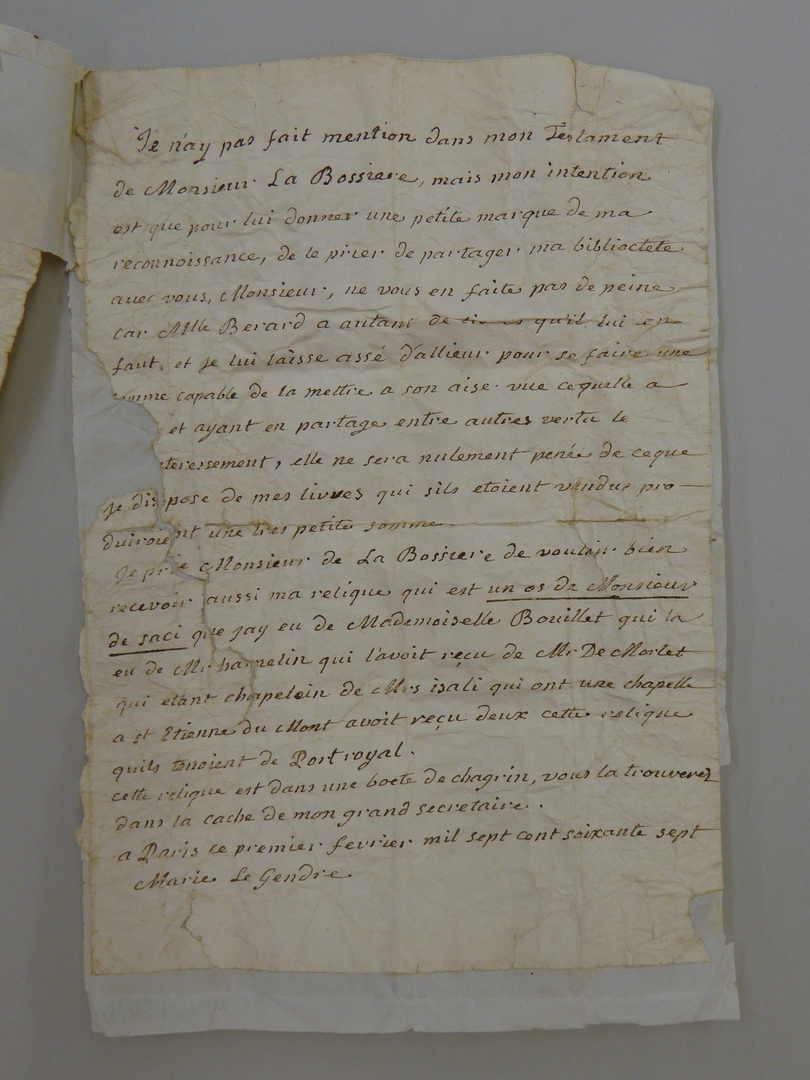 Je n'ay pas fait mention dans mon Testament
de Monsieur La Bossiere, mais mon intention
est que pour lui donner une petite marque de ma
reconnoissance, de le prier de partager ma biblioctete
avec vous, Monsieur, ne vous en faite pas de peine
car Mlle Berard a autant de qu'il lui en
faut, et je lui laisse assé d'allieur pour se faire une
somme capable de la mettre a son aise vue cequelle a
et ayant en partage entre autres vertu le
teressement, elle ne sera nulement penée de ceque
je dispose de mes livres qui sils etoient vendus pro-
duiroient une tres petite somme
Je prie Monsieur de La Bossiere de vouloir bien
recevoir aussi ma relique qui est un os de Monsieur
de saci que jay eu de Mademoiselle Bouillet qui la
eu de Mr hamelin qui l'avoit reçu de Mr De Morlet
qui etant chapelein de Mrs isali qui ont une chapelle
a st Etienne du Mont avoit reçu deux cette relique
quils tenoient de Portroyal.
cette relique est dans une boete de chagrin, vous la trouverez
dans la cache de mon grand secretaire.
a Paris ce premier fevrier mil sept cent soixante sept
Marie Le Gendre